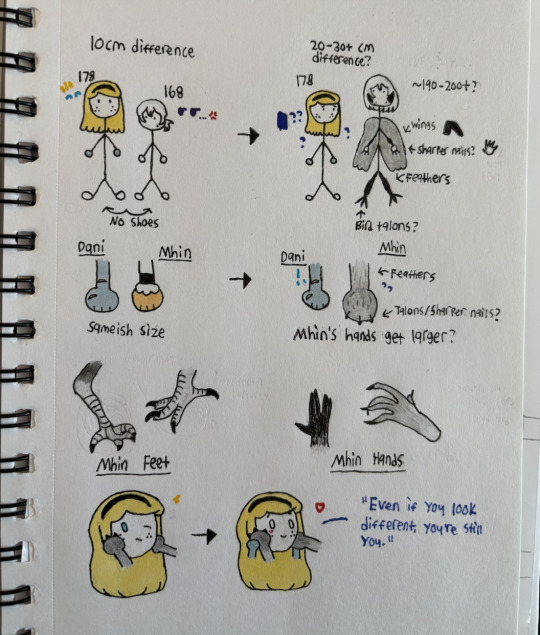 10cm difference
178
168
No shoes
20-30+ cm
difference?
178
~190-200+?
wings
sharper nails?
Feathers
Bird talons?
??
?
?
Dani
Mhin
Sameish size
Dani
Mhin
Feathers
??
Talons/Sharper nails?
Mhin's hands get larger?
Mhin Feet
Mhin Hands
"Even if you look
different, you're still
you."